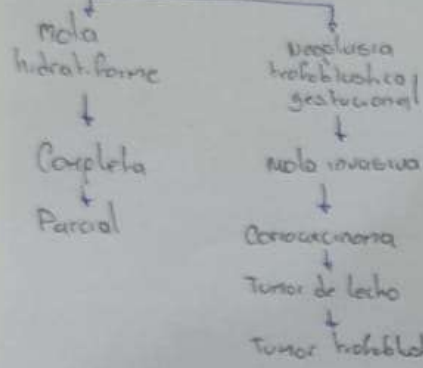 Mola
hidatiforme
Completa
Parcial
Neoplasia
trofoblastica
gestacional
Mola invasiva
Coriocarcinoma
Tumor de lecho
Tumor trofoblast